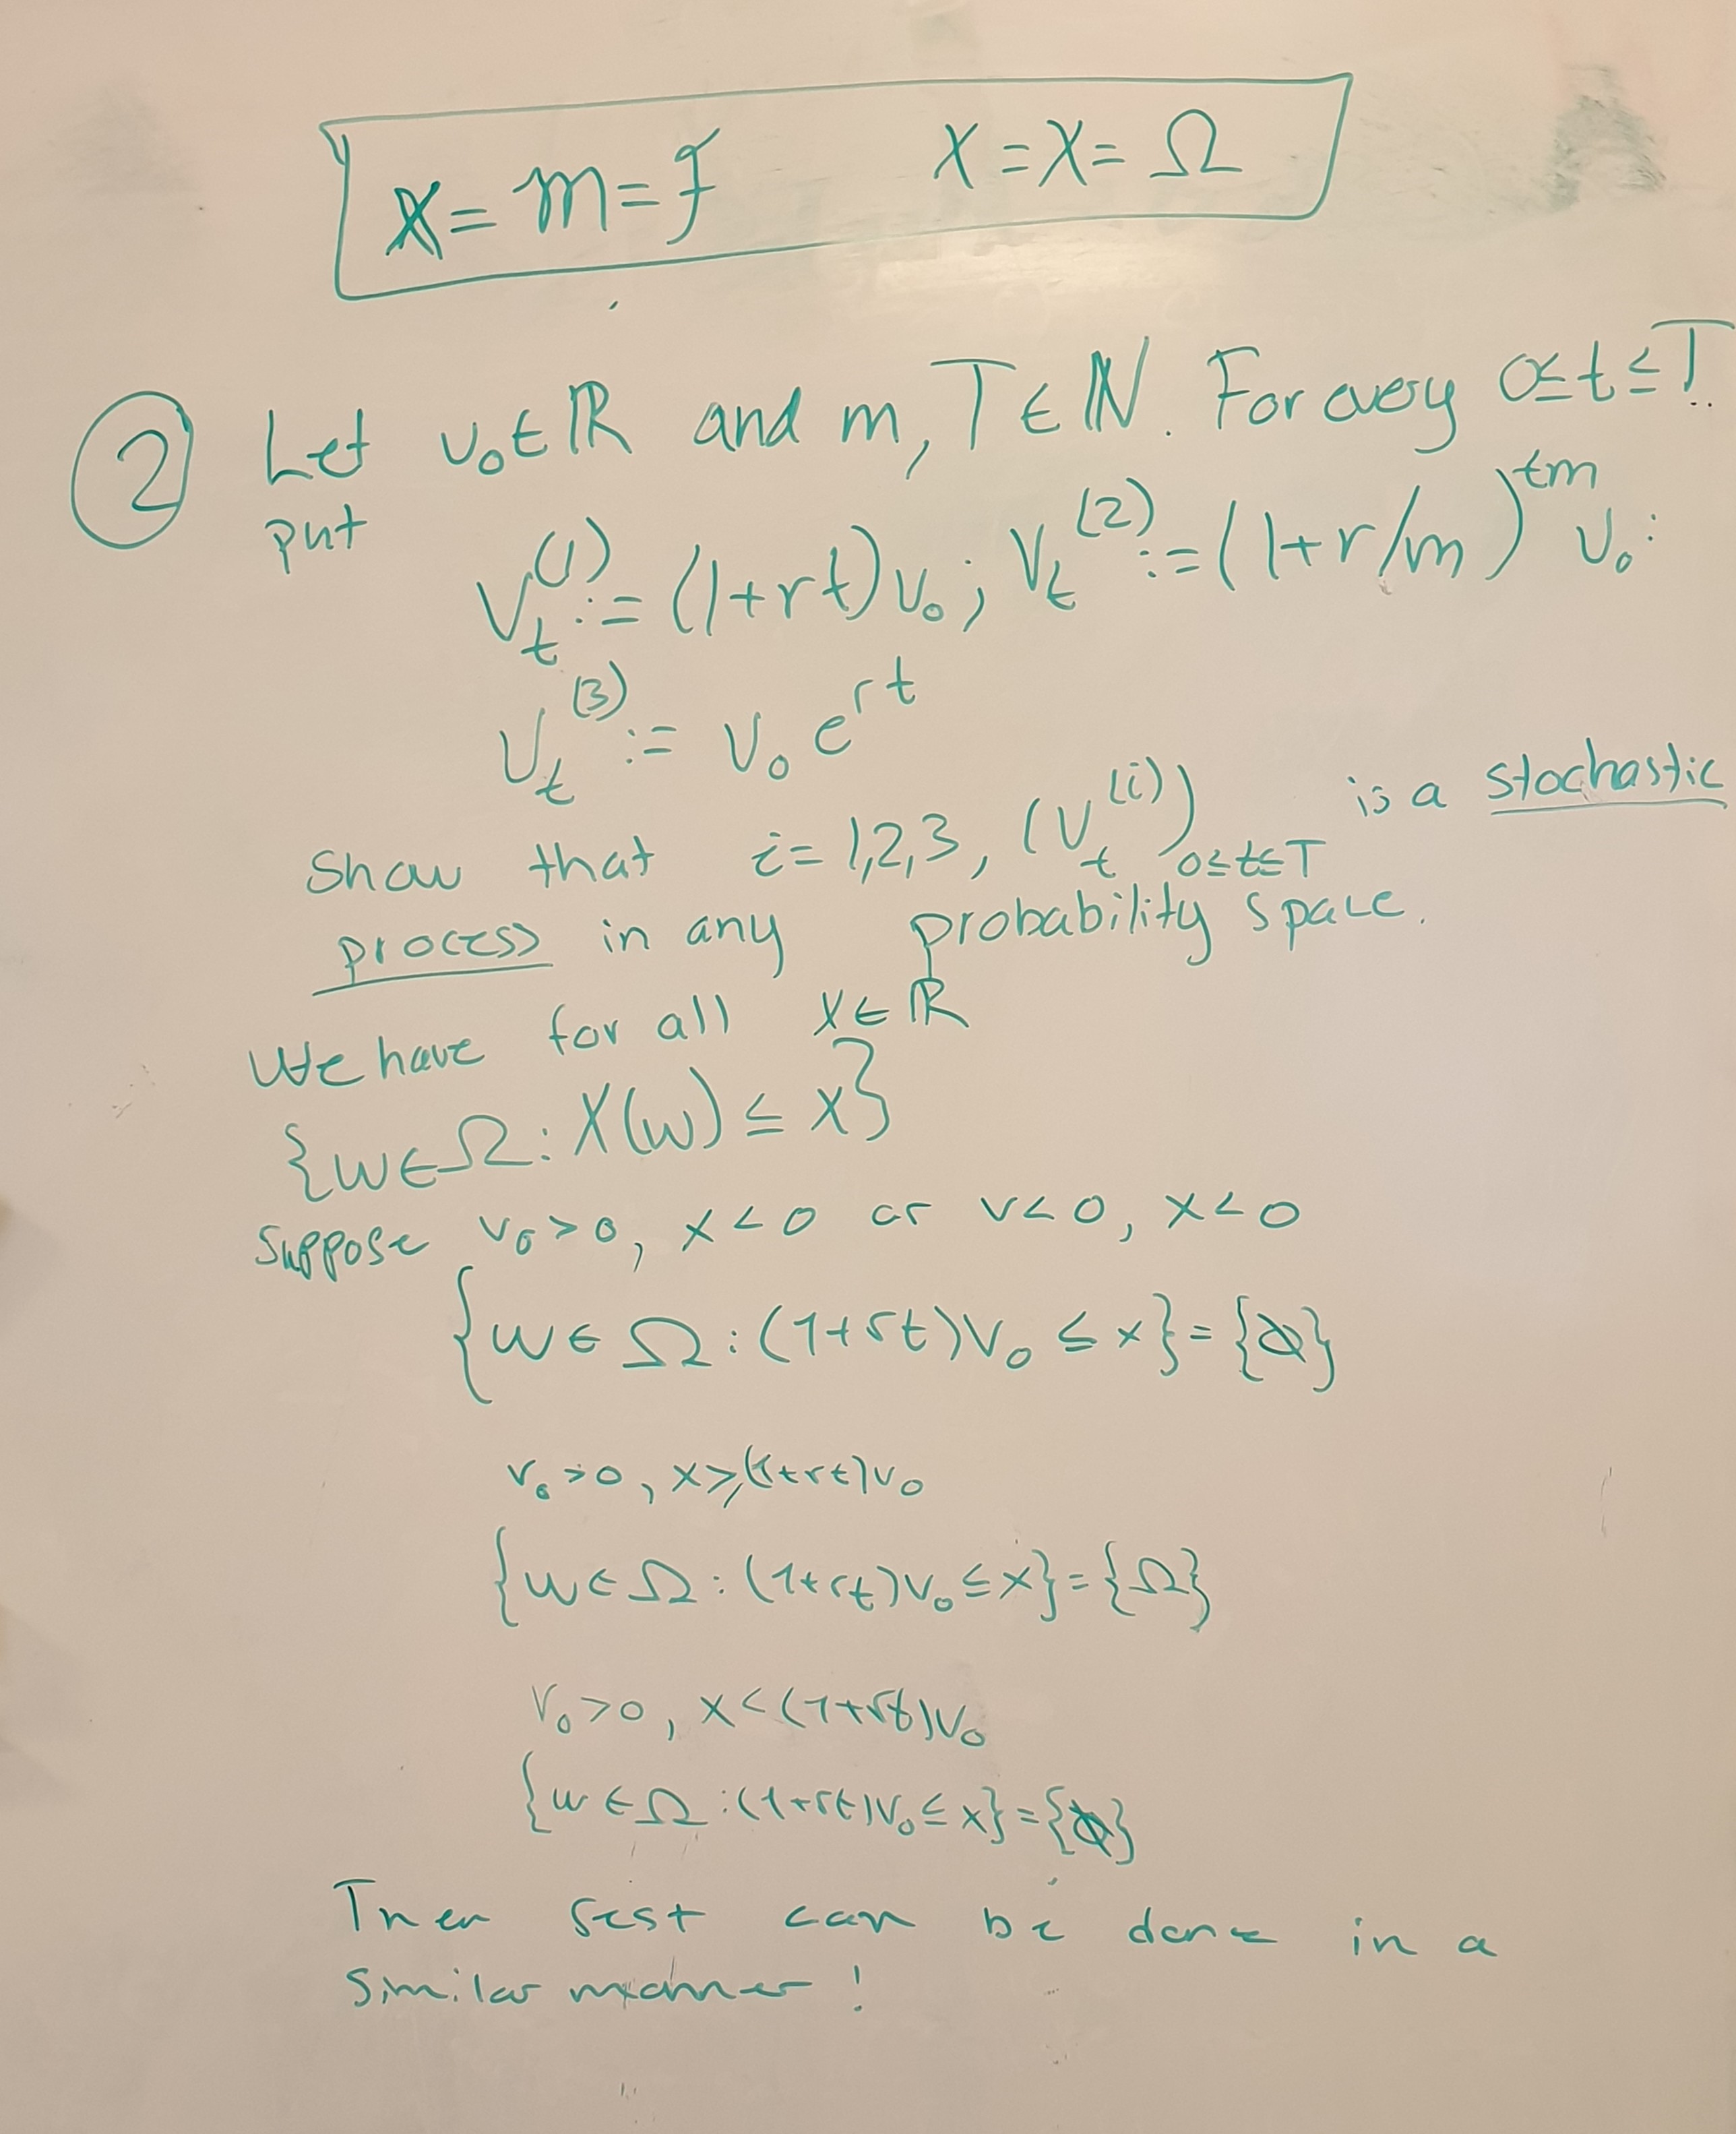 X = m = F X = X = Ω
② Let v₀∈ℝ and m, T∈ℕ. For every 0≤t≤T
put
V_t^(1) := (1+rt)v₀; V_t^(2) := (1+r/m)^tm v₀:
V_t^(3) := v₀ e^rt
Show that i=1,2,3, (V_t^(i))_0≤t≤T is a stochastic
process in any probability space.
We have for all x∈ℝ
{w∈Ω: X(w) ≤ x}
Suppose v₀>0, x<0 or v<0, x<0
{w∈Ω: (1+rt)v₀ ≤ x} = {∅}
v₀>0, x≥(1+rt)v₀
{w∈Ω: (1+rt)v₀ ≤ x} = {Ω}
v₀>0, x<(1+rt)v₀
{w∈Ω: (1+rt)v₀ ≤ x} = {∅}
rest can be done in a
similar manner!